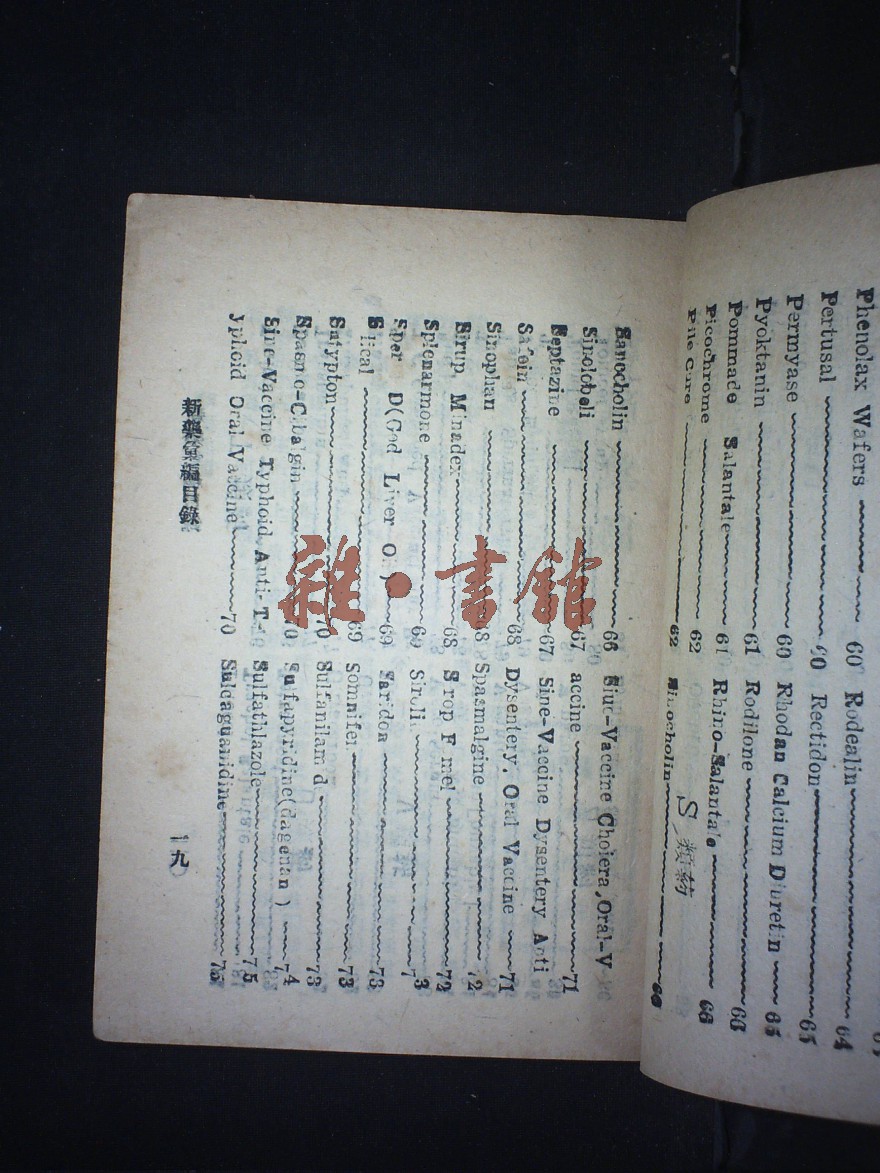 Phenolax Wafers 60
Pertusal
Permyase 60
Pyoktanin 61
Pommade Salantale 61
Picochrome 62
Pile Cure 62
Rodealin 64
Rectidon 65
Rhodan Calcium Diuretin 65
Rodilone 66
Rhino-Salantale 66
S 類药
Sinocholin 66
Sanocholin 66
Sinolobeli 67
Septazine 67
Safoin 68
Sinophan 68
Sirup, Minadex 68
Splenarmone 69
Sper D(God Liver Oil) 69
Slical 69
Sntypton 70
Spasmo-Cibalgin 70
Sine-Vaccine Typhoid, Anti-T-
yphoid Oral Vaccine 70
Sinc-Vaccine Cholera,Oral-V
accine 71
Sine-Vaccine Dysentery Anti
Dysentery, Oral Vaccine 71
Spasmalgine 72
Sirop Famel 72
Siroli 73
Saridon 73
Somnifen 73
Sulfanilamid 73
Sulfapyridine(dagenan) 74
Sulfathlazole 75
Suldaguanidine 75
新藥彙編目錄
一九
雜·書館